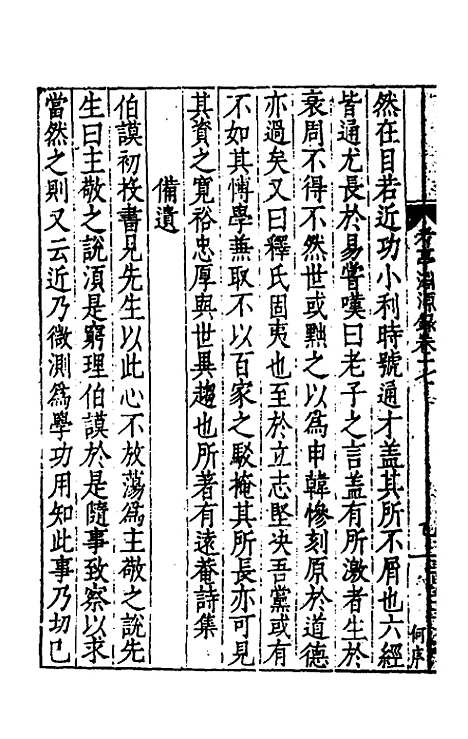 然在目若近功小利時號通才盖其所不屑也六經
皆通尤長於易嘗嘆曰老子之言盖有所激者生於
衰周不得不然世或黜之以為申韓慘刻原於道德
亦過矣又曰釋氏固夷也至於立志堅決吾黨或有
不如其慱學兼取不以百家之駁掩其所長亦可見
其資之寛裕忠厚與世異趨也所著有遠菴詩集
備遺
伯謨初投書見先生以此心不放蕩為主敬之說先
生曰主敬之說湏是窮理伯謨於是隨事致察以求
當然之則又云近乃微測為學功用知此事乃切己
考亭淵源錄卷十七
何序